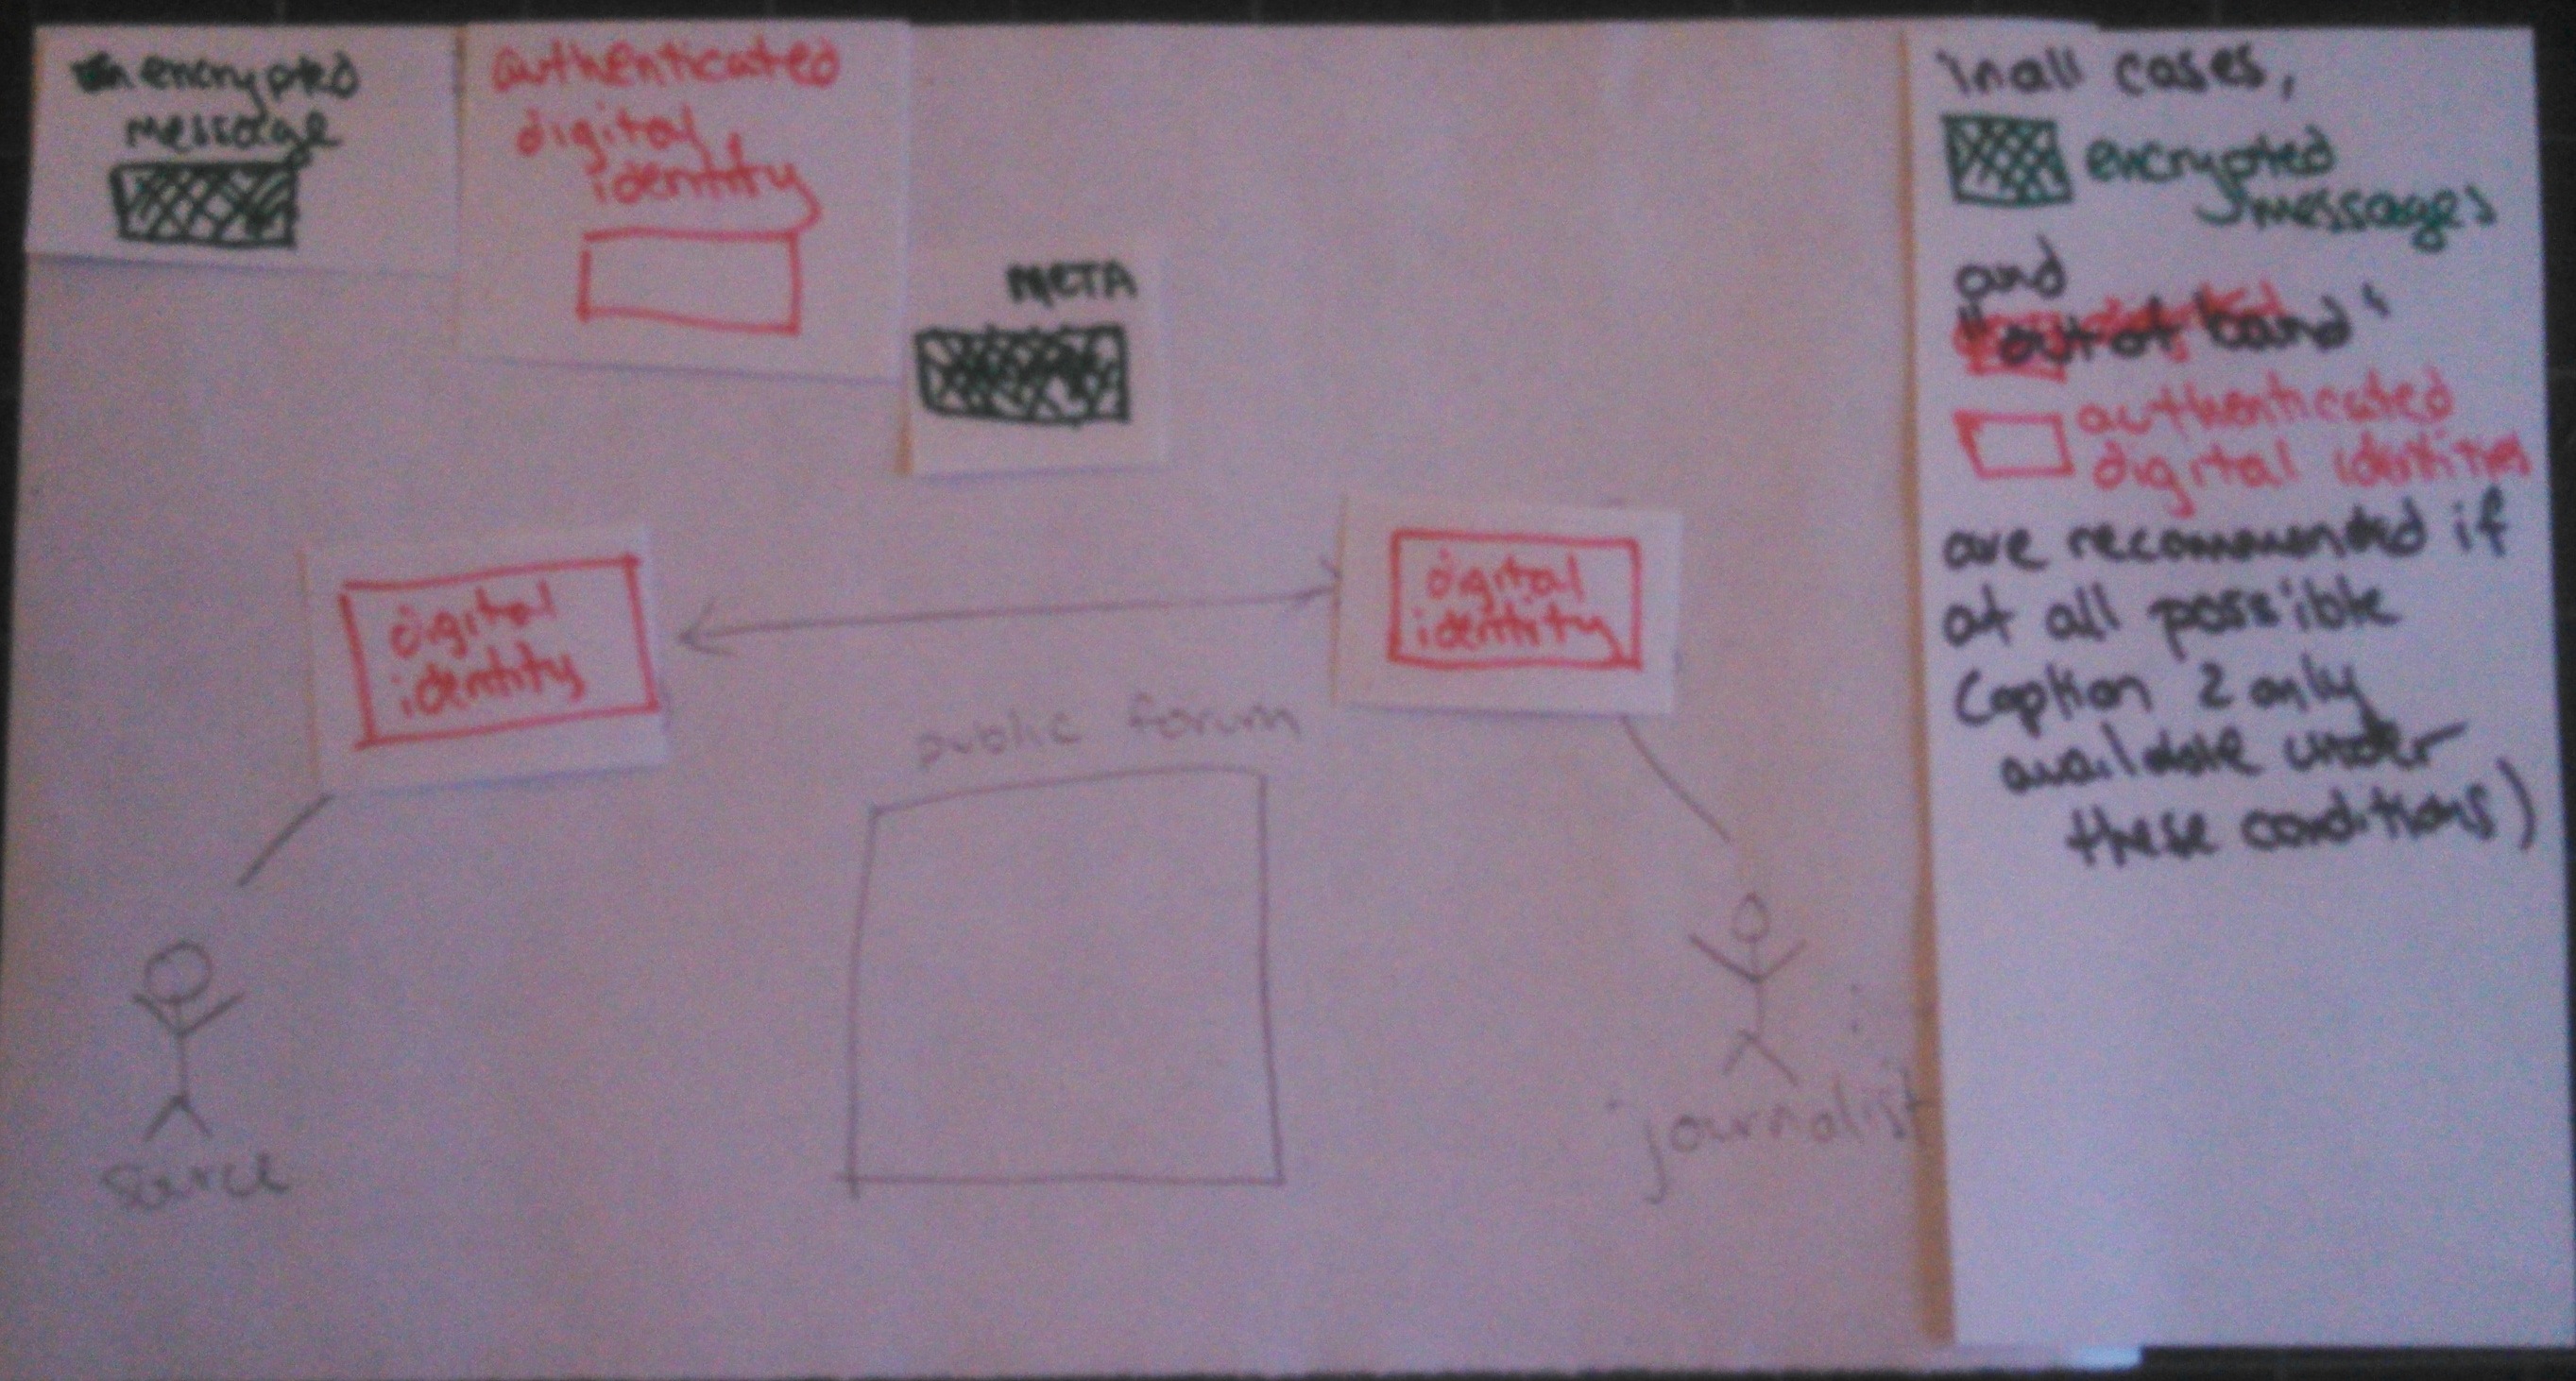 encrypted
message
authenticated
digital
identity
META
digital
identity
digital
identity
public forum
source
journalist
in all cases,
encrypted
messages
and
"out of band"
authenticated
digital identities
are recommended if
at all possible
(option 2 only
available under
these conditions)